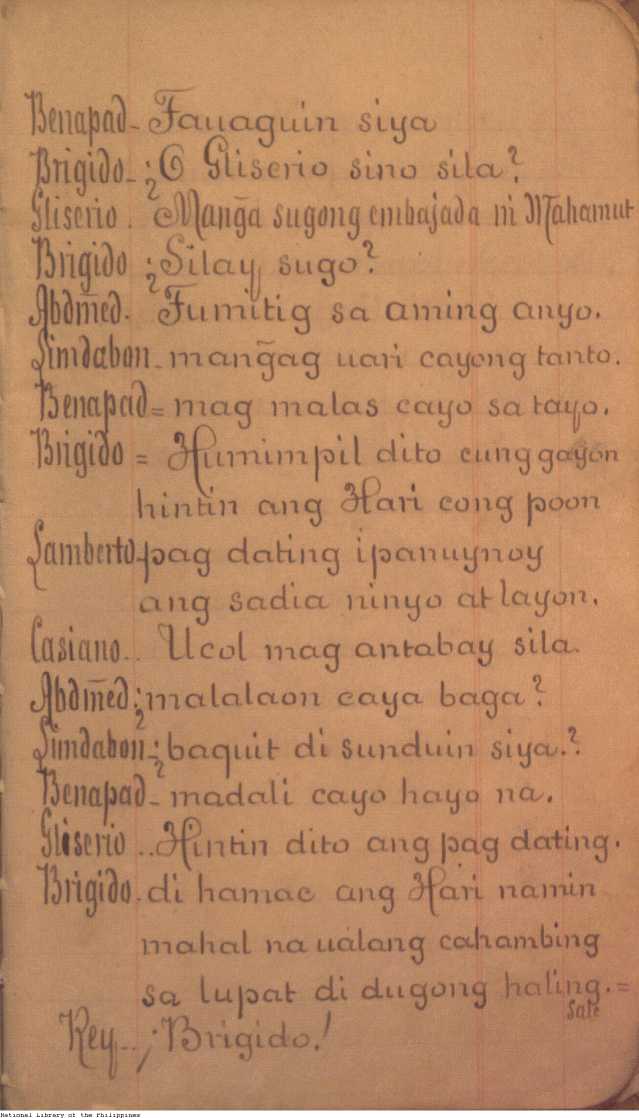 Benapad- Tauaguin siya
Brigido- ¿O Gliserio sino sila?
Gliserio. Mang̃a sugong embajada ni Mahamut
Brigido ¿Silay sugo?
Abdm̃ed. Tumitig sa aming anyo.
Limdabon- mang̃ag uari cayong tanto.
Benapad= mag malas cayo sa tayo.
Brigido = Humimpil dito cung gayon
hintin ang Hari cong poon
Lamberto- pag dating ipanuynoy
ang sadia ninyo at layon.
Casiano.. Ucol mag antabay sila.
Abdm̃ed ¿malalaon caya baga?
Lindabon- ¿baquit di sunduin siya.?
Benapad- madali cayo hayo na.
Gliserio .. Hintin dito ang pag dating.
Brigido. di hamac ang Hari namin
mahal na ualang cahambing
sa lupat di dugong haling.=
Sale
Rey.. ¡Brigido!
National Library of the Philippines